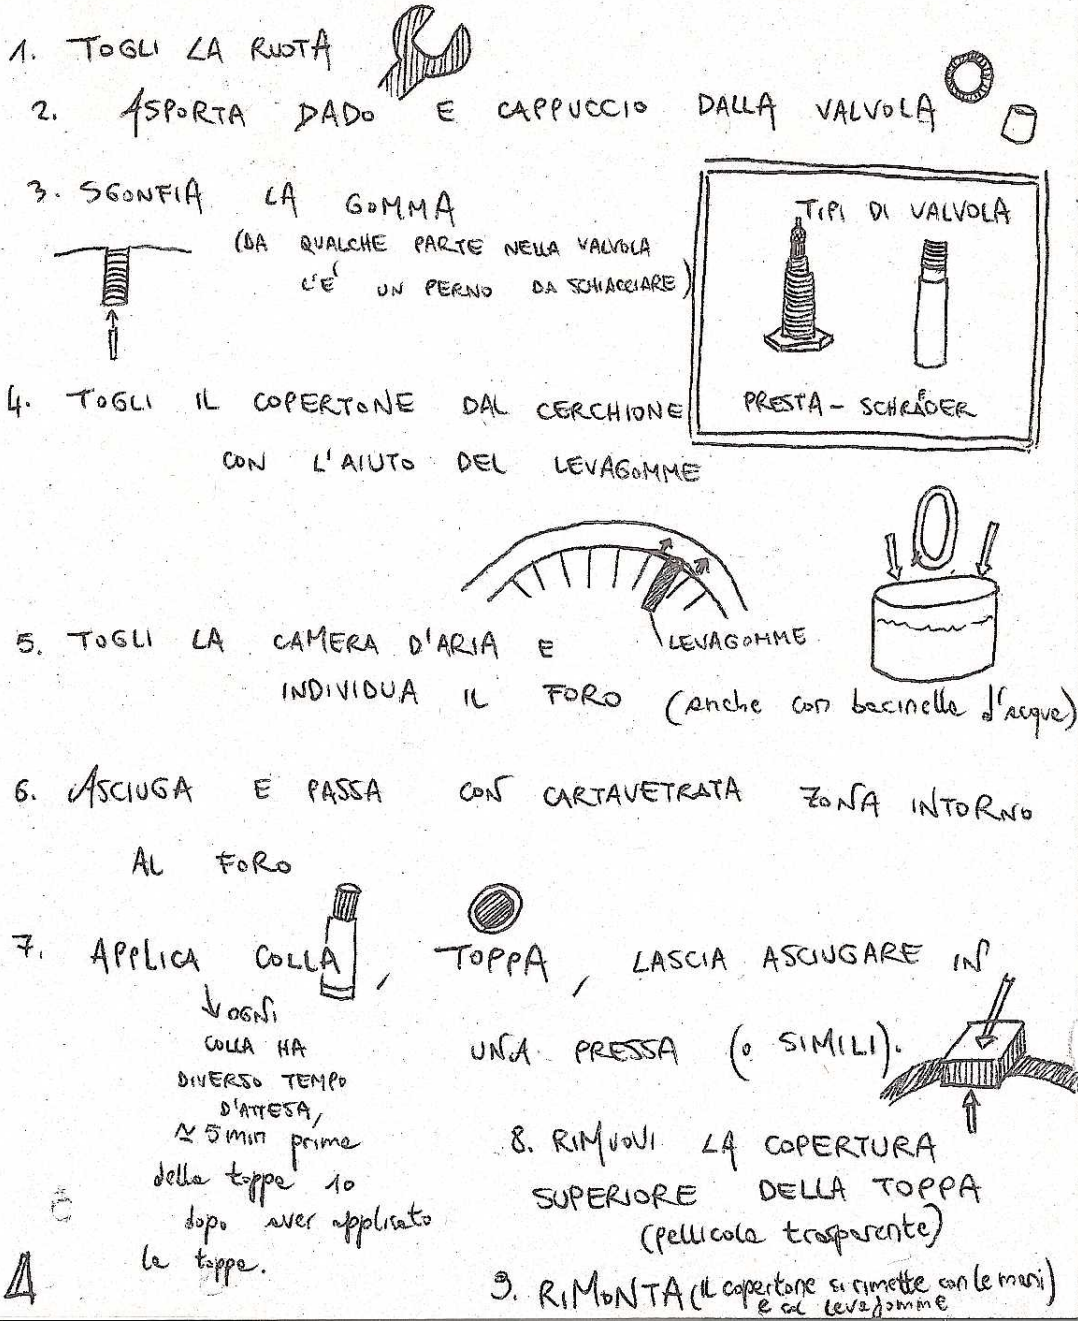 1. TOGLI LA RUOTA
2. ASPORTA DADO E CAPPUCCIO DALLA VALVOLA
3. SGONFIA LA GOMMA
(DA QUALCHE PARTE NELLA VALVOLA
C'E' UN PERNO DA SCHIACCIARE)
TIPI DI VALVOLA
PRESTA - SCHRÄDER
4. TOGLI IL COPERTONE DAL CERCHIONE
CON L'AIUTO DEL LEVAGOMME
LEVAGOMME
5. TOGLI LA CAMERA D'ARIA E
INDIVIDUA IL FORO (anche con bacinella d'acqua)
6. ASCIUGA E PASSA CON CARTAVETRATA ZONA INTORNO
AL FORO
7. APPLICA COLLA, TOPPA, LASCIA ASCIUGARE IN
UNA PRESSA (o SIMILI).
OGNI
COLLA HA
DIVERSO TEMPO
D'ATTESA,
≃ 5 min prima
della toppa 10
dopo aver applicato
la toppa.
8. RIMUOVI LA COPERTURA
SUPERIORE DELLA TOPPA
(pellicola trasparente)
9. RIMONTA (il copertone si rimette con le mani)
e col levagomme
4